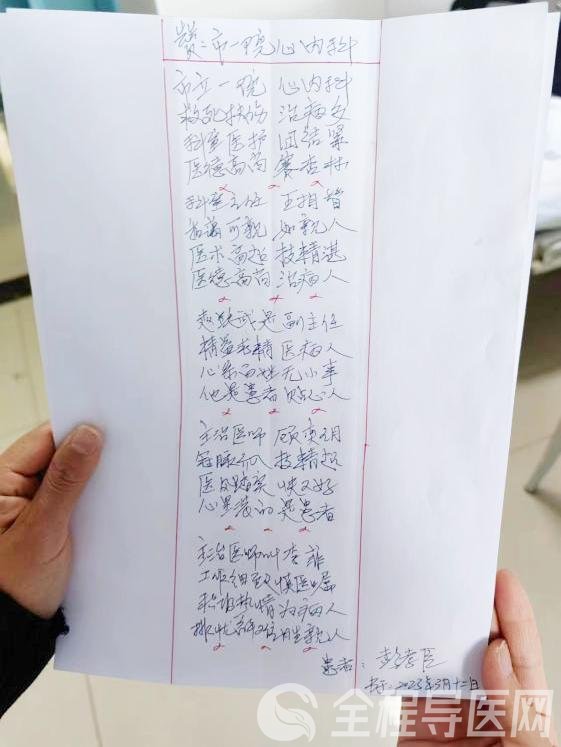 赞：市一院心内科
市立一院 心内科
救死扶伤 治病多
科室医护 团结紧
医德高尚 赛杏林
科室主任 王相智
和蔼可亲 如亲人
医术高超 技精湛
医德高尚 治病人
赵 武是副主任
精益求精 医病人
心系百姓无小事
他是患者 贴心人
主治医师 顾 月
冠脉介入 技精招
医 快又好
心里装的 是患者
主治医师叫李菲
工作细致 慎医嘱
热情为病人
排忧 胜亲人
患者：彭 臣
于：2023年3月十二日
全程导医网